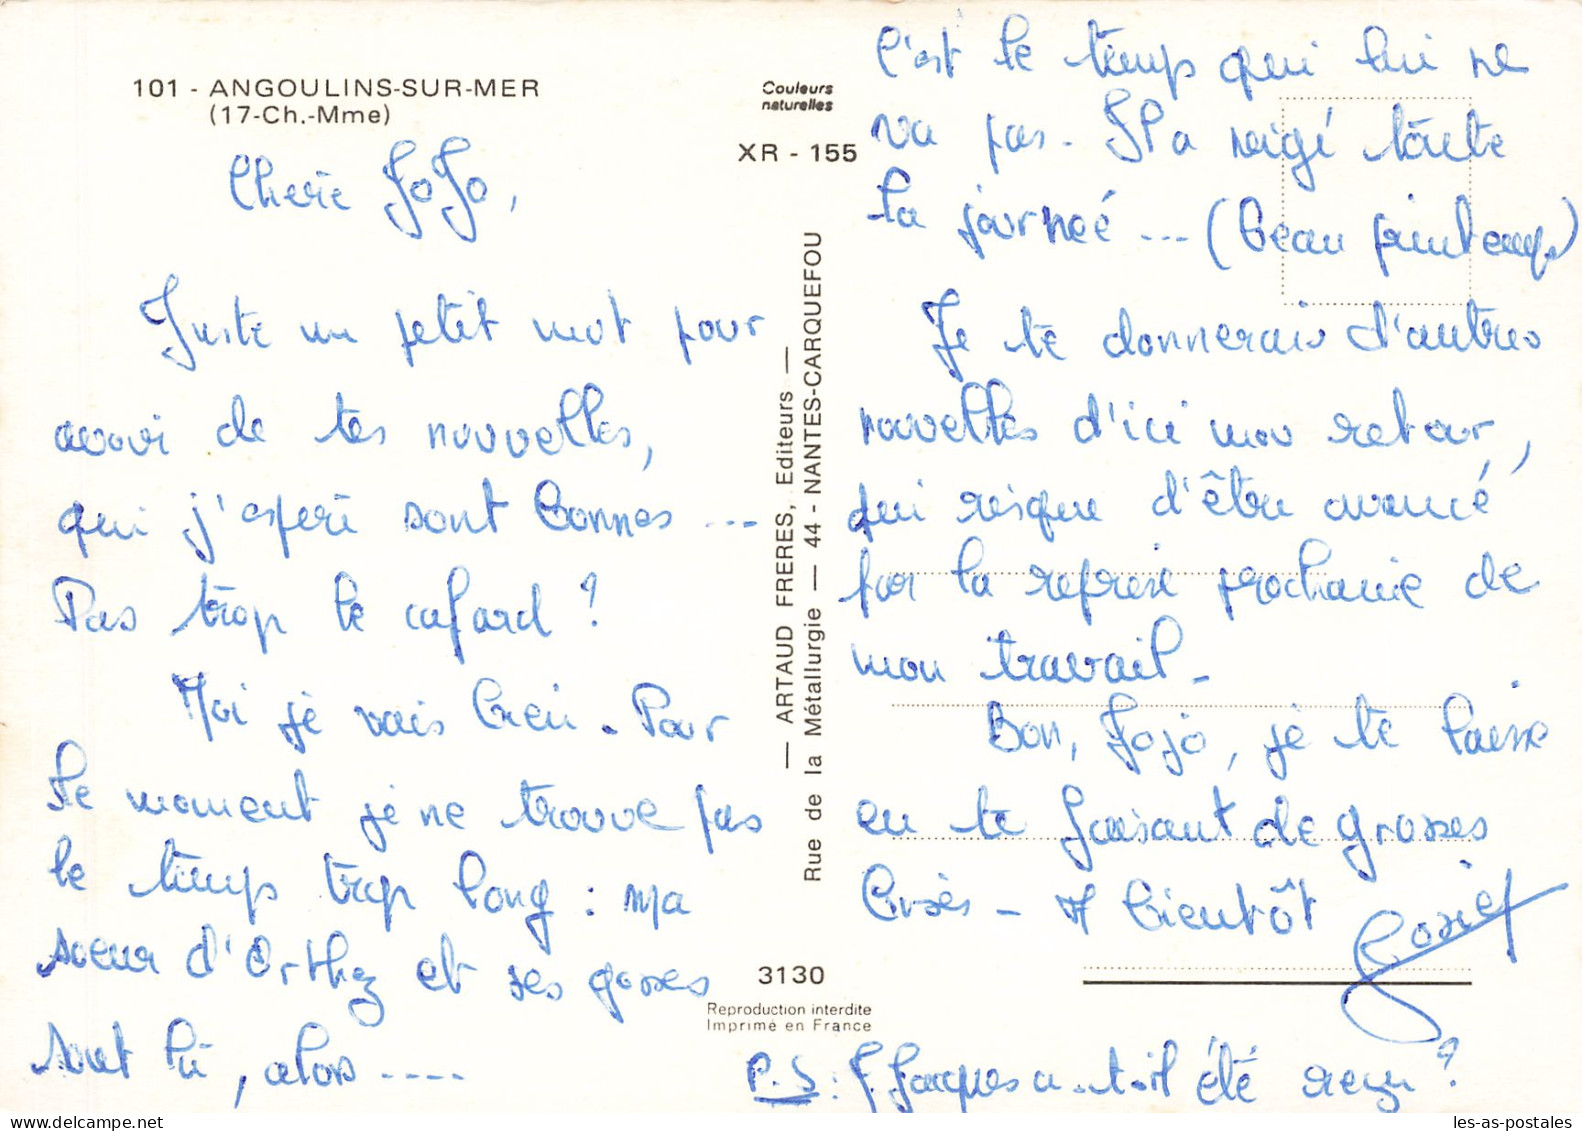 101 - ANGOULINS-SUR-MER
(17-Ch.-Mme)
Couleurs
naturelles
XR - 155
Cherie JoJo,
Juste un petit mot pour
avoir de tes nouvelles,
qui j'espère sont bonnes ...
Pas trop le cafard ?
Moi je vais bien. Pour
le moment je ne trouve pas
le temps trop long : ma
soeur d'Orthez et ses gosses
sont là, alors ....
— ARTAUD FRERES, Editeurs —
Rue de la Métallurgie — 44 - NANTES-CARQUEFOU
3130
Reproduction interdite
Imprimé en France
C'est le temps qui lui ne
va pas. Il a neigé toute
la journeé ... (beau printemps)
Je te donnerais d'autres
nouvelles d'ici mon retour,
qui risque d'être avancé
par la reprise prochaine de
mon travail.
Bon, Jojo, je te laisse
en te faisant de grosses
bises - A bientôt
P.S : Jacques a-t-il été reçu ?
les-as-postales